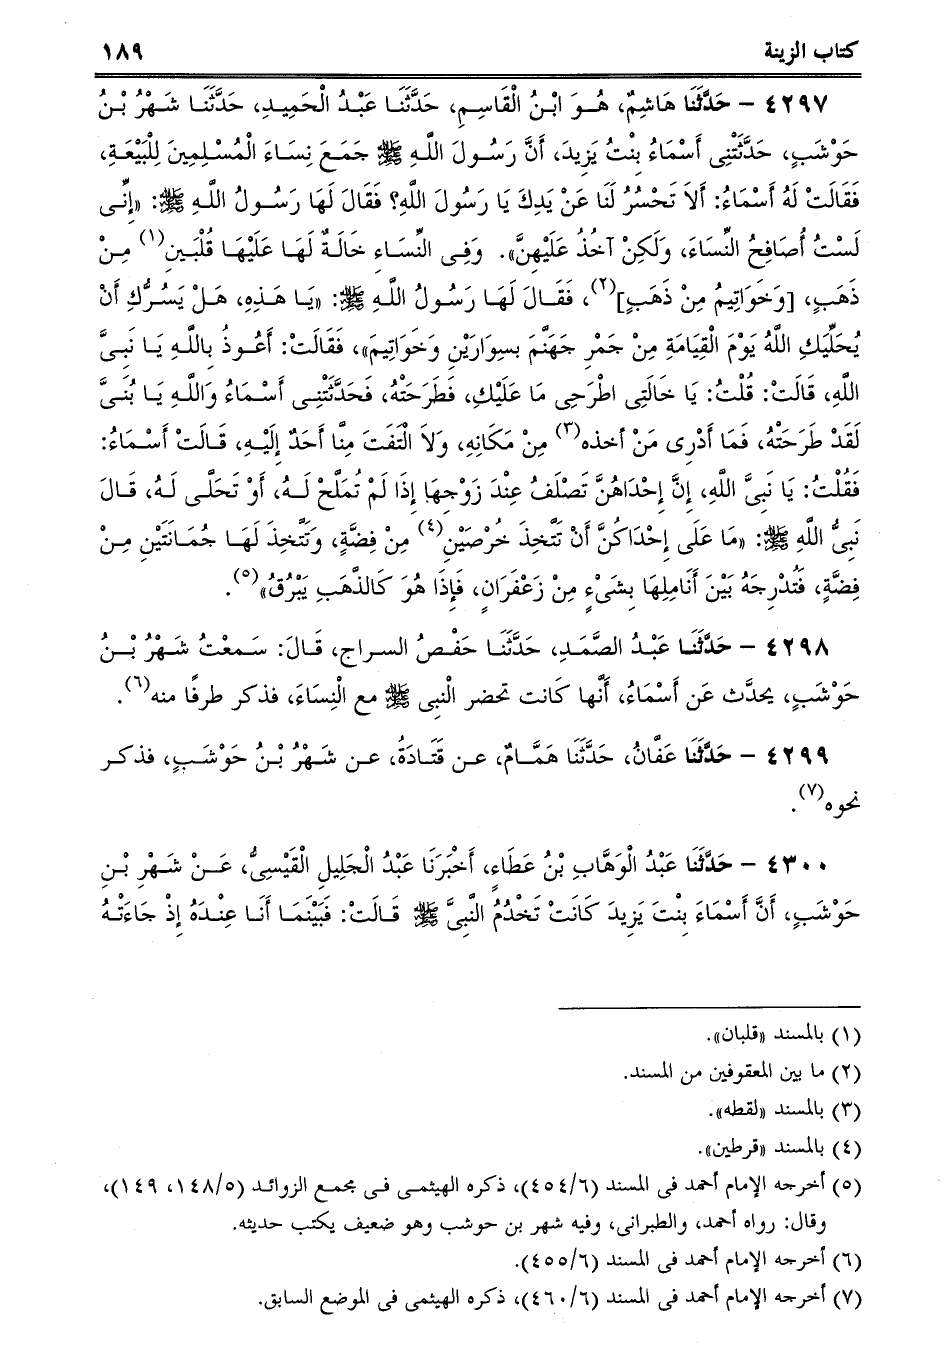 كتاب الزينة ١٨٩
٤٢٩٧ – حَدَّثَنَا هَاشِمٌ، هُوَ ابْنُ الْقَاسِمِ، حَدَّثَنَا عَبْدُ الْحَمِيدِ، حَدَّثَنَا شَهْرُ بْنُ
حَوْشَبٍ، حَدَّثَتْنِى أَسْمَاءُ بِنْتُ يَزِيدَ، أَنَّ رَسُولَ اللَّهِ ﷺ جَمَعَ نِسَاءَ الْمُسْلِمِينَ لِلْبَيْعَةِ،
فَقَالَتْ لَهُ أَسْمَاءُ: أَلاَ تَحْسُرُ لَنَا عَنْ يَدِكَ يَا رَسُولَ اللَّهِ؟ فَقَالَ لَهَا رَسُولُ اللَّهِ ﷺ: «إِنِّى
لَسْتُ أُصَافِحُ النِّسَاءَ، وَلَكِنْ آخُذُ عَلَيْهِنَّ». وَفِى النِّسَاءِ خَالَةٌ لَهَا عَلَيْهَا قُلْبَيْنِ(١) مِنْ
ذَهَبٍ، [وَخَوَاتِيمُ مِنْ ذَهَبٍ](٢)، فَقَالَ لَهَا رَسُولُ اللَّهِ ﷺ: «يَا هَذِهِ، هَلْ يَسُرُّكِ أَنْ
يُحَلِّيَكِ اللَّهُ يَوْمَ الْقِيَامَةِ مِنْ جَمْرِ جَهَنَّمَ بِسِوَارَيْنِ وَخَوَاتِيمَ»، فَقَالَتْ: أَعُوذُ بِاللَّهِ يَا نَبِىَّ
اللَّهِ، قَالَتْ: قُلْتُ: يَا خَالَتِى اطْرَحِى مَا عَلَيْكِ، فَطَرَحَتْهُ، فَحَدَّثَتْنِى أَسْمَاءُ وَاللَّهِ يَا بُنَىَّ
لَقَدْ طَرَحَتْهُ، فَمَا أَدْرِى مَنْ أخذه(٣) مِنْ مَكَانِهِ، وَلاَ الْتَفَتَ مِنَّا أَحَدٌ إِلَيْهِ، قَالَتْ أَسْمَاءُ:
فَقُلْتُ: يَا نَبِىَّ اللَّهِ، إِنَّ إِحْدَاهُنَّ تَصْلَفُ عِنْدَ زَوْجِهَا إِذَا لَمْ تُمَلَّحْ لَهُ، أَوْ تَحَلَّى لَهُ، قَالَ
نَبِىُّ اللَّهِ ﷺ: «مَا عَلَى إِحْدَاكُنَّ أَنْ تَتَّخِذَ خُرْصَيْنِ(٤) مِنْ فِضَّةٍ، وَتَتَّخِذَ لَهَا جُمَانَتَيْنِ مِنْ
فِضَّةٍ، فَتُدْرِجَهُ بَيْنَ أَنَامِلِهَا بِشَىْءٍ مِنْ زَعْفَرَانٍ، فَإِذَا هُوَ كَالذَّهَبِ يَبْرُقُ»(٥).
٤٢٩٨ – حَدَّثَنَا عَبْدُ الصَّمَدِ، حَدَّثَنَا حَفْصُ السراج، قَالَ: سَمعْتُ شَهْرُ بْنُ
حَوْشَبٍ، يحدَّث عَن أَسْمَاءُ، أَنَّها كَانت تحضر الْنبِى ﷺ مع الْنِسَاءَ، فذكر طرفًا منه(٦).
٤٢٩٩ – حَدَّثَنَا عَفَّانُ، حَدَّثَنَا هَمَّامٌ، عن قَتَادَةُ، عن شَهْرُ بْنُ حَوْشَبٍ، فذكر
نحوه(٧).
٤٣٠٠ – حَدَّثَنَا عَبْدُ الْوَهَّابِ بْنُ عَطَاءٍ، أَخْبَرَنَا عَبْدُ الْجَلِيلِ الْقَيْسِىُّ، عَنْ شَهْرِ بْنِ
حَوْشَبٍ، أَنَّ أَسْمَاءَ بِنْتَ يَزِيدَ كَانَتْ تَخْدُمُ النَّبِىَّ ﷺ قَالَتْ: فَبَيْنَمَا أَنَا عِنْدَهُ إِذْ جَاءَتْهُ
(١) بالمسند «قلبان».
(٢) ما بين المعقوفين من المسند.
(٣) بالمسند «لقطه».
(٤) بالمسند «قرطين».
(٥) أخرجه الإمام أحمد فى المسند (٤٥٤/٦)، ذكره الهيثمى فى مجمع الزوائد (١٤٨/٥، ١٤٩)،
وقال: رواه أحمد، والطبرانى، وفيه شهر بن حوشب وهو ضعيف يكتب حديثه.
(٦) أخرجه الإمام أحمد فى المسند (٤٥٥/٦).
(٧) أخرجه الإمام أحمد فى المسند (٤٦٠/٦)، ذكره الهيثمى فى الموضع السابق.